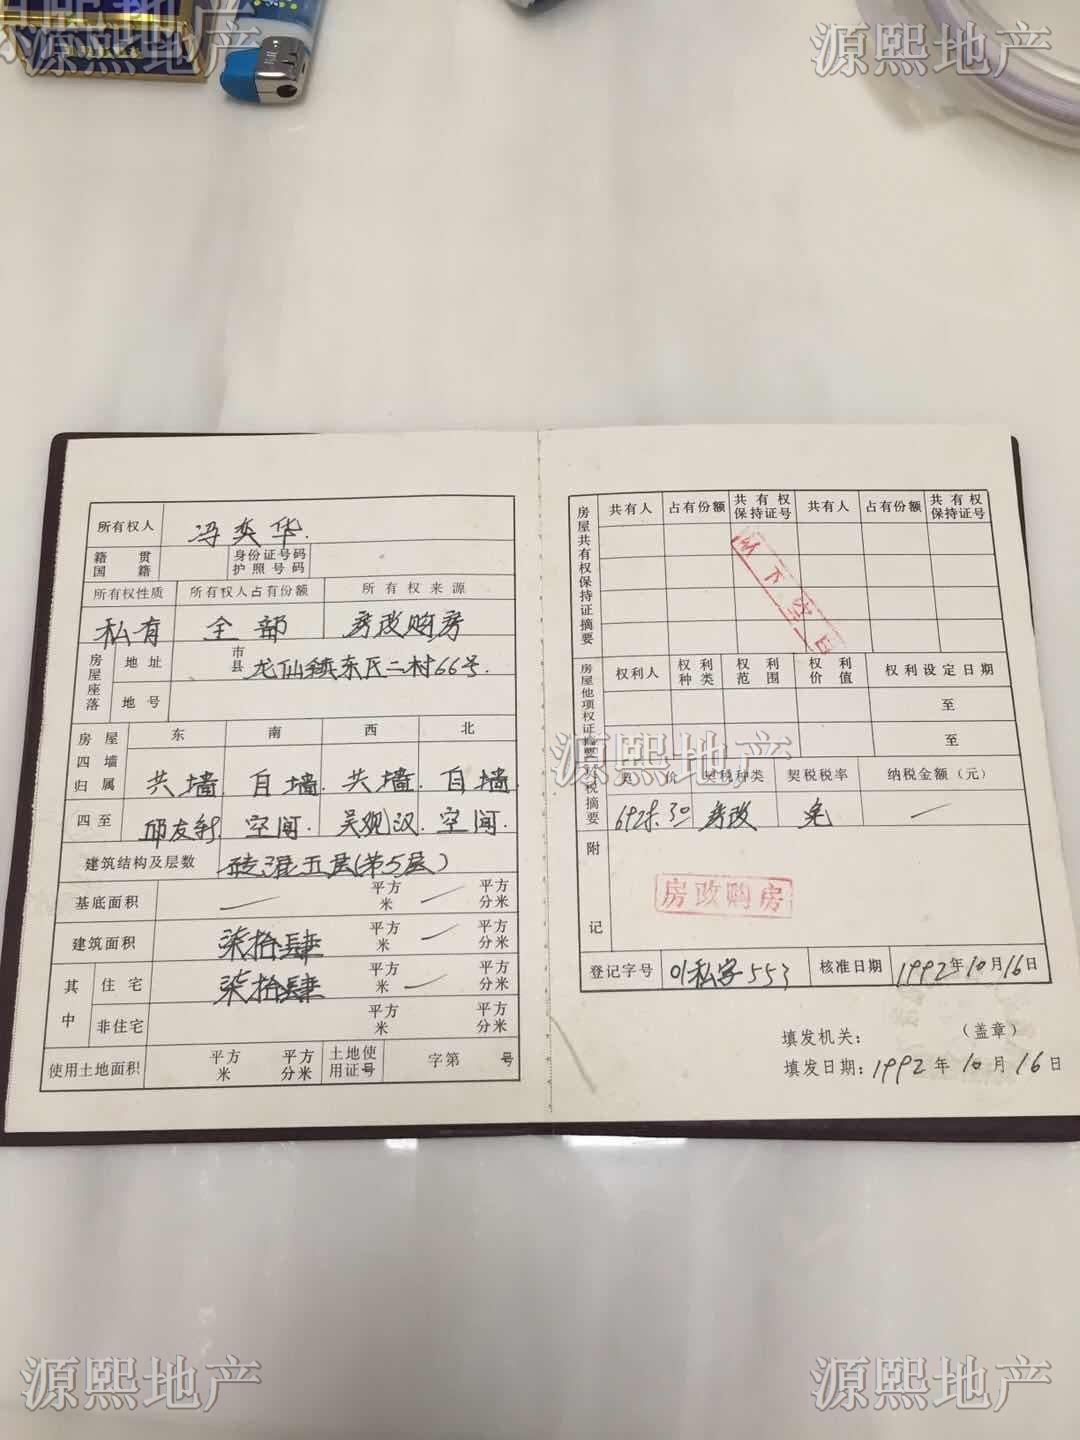 源熙地产
源熙地产
所有权人 冯奕华.
籍贯 国籍 身份证号码 护照号码
所有权性质 所有权人占有份额 所有权来源
私有 全部 房改购房
房屋座落 地址 市县 龙仙镇东民二村66号.
地号
房屋四墙归属 东 南 西 北
共墙 自墙. 共墙. 自墙.
四至 邱友新 空间. 吴观汉. 空间.
建筑结构及层数 砖混五层(第5层)
基底面积 — 平方米 — 平方分米
建筑面积 柒拾肆 平方米 — 平方分米
其中 住宅 柒拾肆 平方米 — 平方分米
非住宅 平方米 平方分米
使用土地面积 平方米 平方分米 土地使用证号 字第 号
房屋共有权保持证摘要 共有人 占有份额 共有权保持证号 共有人 占有份额 共有权保持证号
以下空白
房屋他项权证摘要 权利人 权利种类 权利范围 权利价值 权利设定日期
至
至
源熙地产
契税摘要 契价 契税种类 契税税率 纳税金额（元）
房改 免 —
附记
房改购房
登记字号 01私字553 核准日期 1992年10月16日
填发机关： （盖章）
填发日期：1992年10月16日
源熙地产
源熙地产